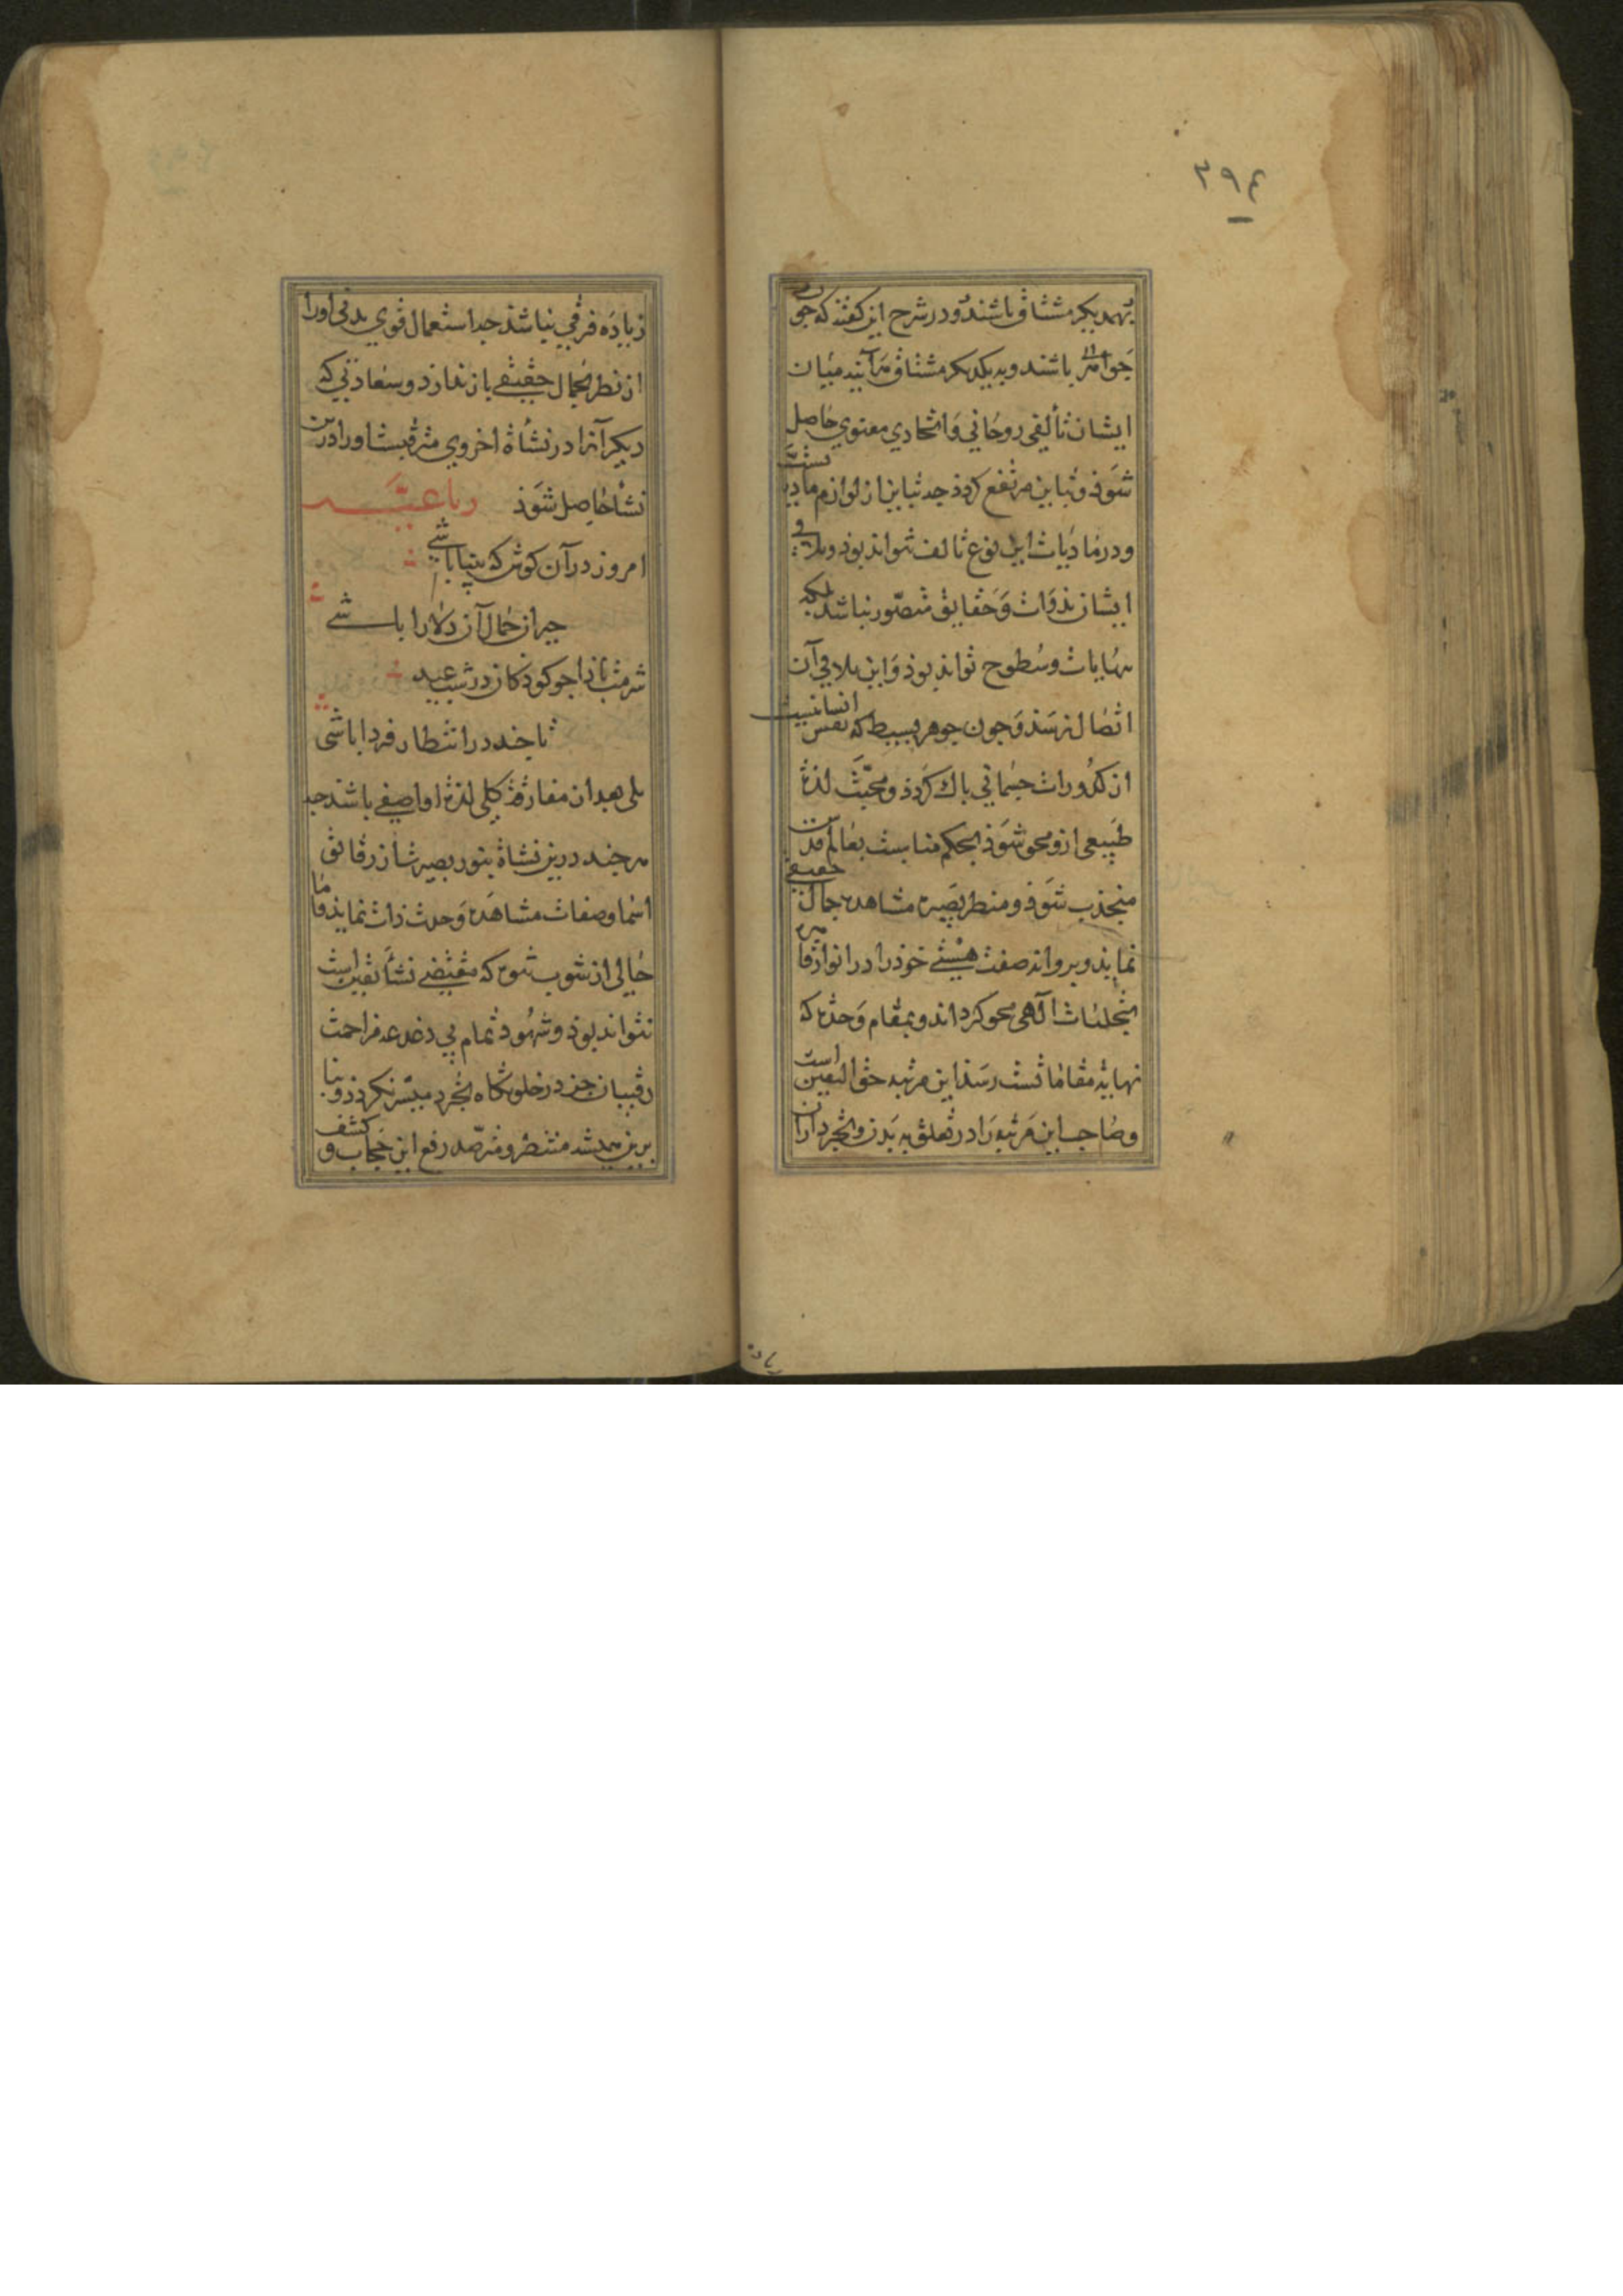 ٣٩٤
بهمدیکر مشتاق باشند و در شرح این کفته که چون
جواهر باشند و بیکدیکر مشتاق مرآینه میان
ایشان تألفی روحانی و اتحادی معنوی حاصل
شود و تباین مرتفع کردد چه تباین از لوازم مادیتست
و در مادیات این نوع تالف نتواند بود و تلاقی
ایشان بذوات و حقایق متصور نباشد بلکه
بنهایات و سطوح تواند بود و این تلاقی آن
اتصال نرسد و چون جوهر بسیط که نفس انسانیست
از کدورات جسمانی باک کردد و محبت لذة
طبیعی ازو محو شود بحکم مناسبت بعالم قدس
منجذب شود و بنظر بصیرة مشاهده جمال حقیقی
نماید و بروانه صفت هستی خود را در انوار قاهره
تجلیات آلهی محو کرداند و بمقام وحدة که
نهایة مقاماتست رسد این مرتبه حق الیقین است
و صاحب این مرتبه را در تعلق به بدن و تجرد از ان
زیاده فرقی نباشد چه استعمال قوی بدنی او را
از نظر بجمال حقیقی باز ندارد و سعادتی که
دیکر آنرا در نشأة اخروی مترقبست او را درین
نشأ حاصل شود رباعیه
امروز در آن کوش که بینا باشی
حیران جمال آن دلارا باشی
شرمت بادا جو کودکان در شب عید
تا جند در انتظار فردا باشی
بلی بعد از مفارقة کلی لذة او اصفی باشد جه
هرجند درین نشاة بنور بصیرت از رقائق
اسما و صفات مشاهده وحدت ذات نماید و اما
خالی از شوب که مقتضی نشأ تعین است
نتواند بود و شهود تمام بی دغدغه مزاحمت
رقیبان جز در خلوتکاه تجرد میسر نکردد و بنا
برین همیشه منتظر و مترصد رفع این حجاب و کشف